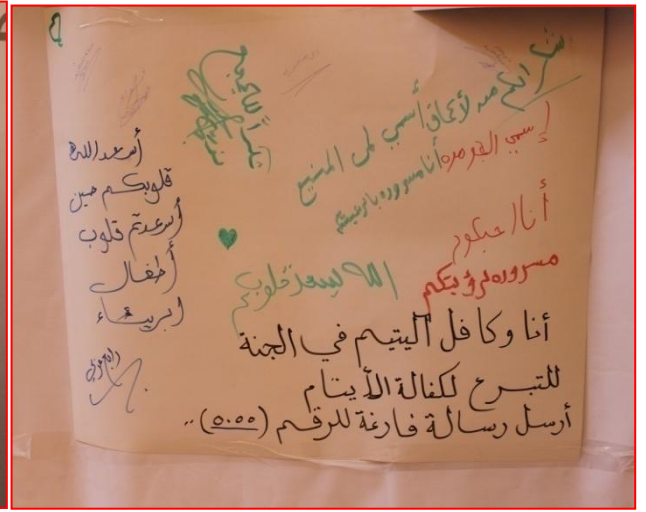 شكرا لكم من الأعماق
أسمي لمى المنيع
أنا مسروره
شكراً للجميع
أنا احبكم
مسروره لرؤيتكم
الله يسعد قلوبكم
أسعد الله
قلوبكم حين
أسعدتم قلوب
أطفال
ابرياء
أنا وكافل اليتيم في الجنة
للتبرع لكفالة الأيتام
أرسل رسالة فارغة للرقم (٥٠٥٥)..